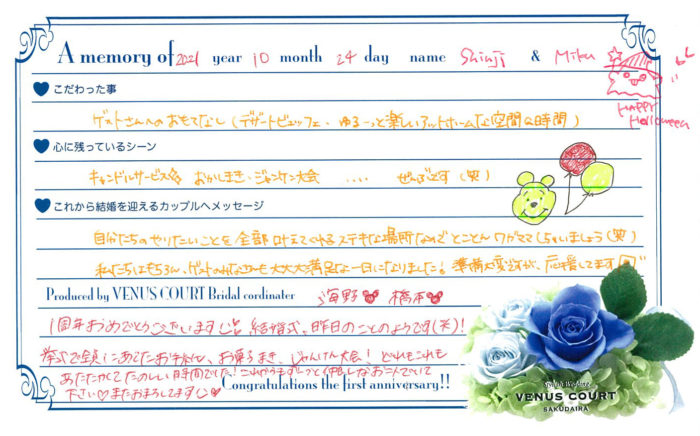 A memory of 2021 year 10 month 24 day name Shinji & Miku
Happy Halloween
こだわった事
ゲストさんへのおもてなし(デザートビュッフェ、ゆるーっと楽しいアットホームな空間&時間)
心に残っているシーン
キャンドルサービス おかしまき・ジャンケン大会 .... ぜんぶです(笑)
これから結婚を迎えるカップルへメッセージ
自分たちのやりたいことを全部叶えてくれるステキな場所なのでとことんワガママしちゃいましょう(笑)
私たちはもちろん、ゲストのみなさまも大大大満足な一日になりました!準備大変ですが、応援してます
Produced by VENUS COURT Bridal cordinater 海野 橋本
1周年おめでとうございます 結婚式、昨日のことのようです(笑)!
挙式で全員にあてたお手紙、お菓子まき、じゃんけん大会!どれもこれも
あたたかくてたのしい時間でした!これからもずーっと仲良しなお二人でいて
下さい♡またおまちしてます
Congratulations the first anniversary!!
Stylish Wedding
VENUS COURT
SAKUDAIRA